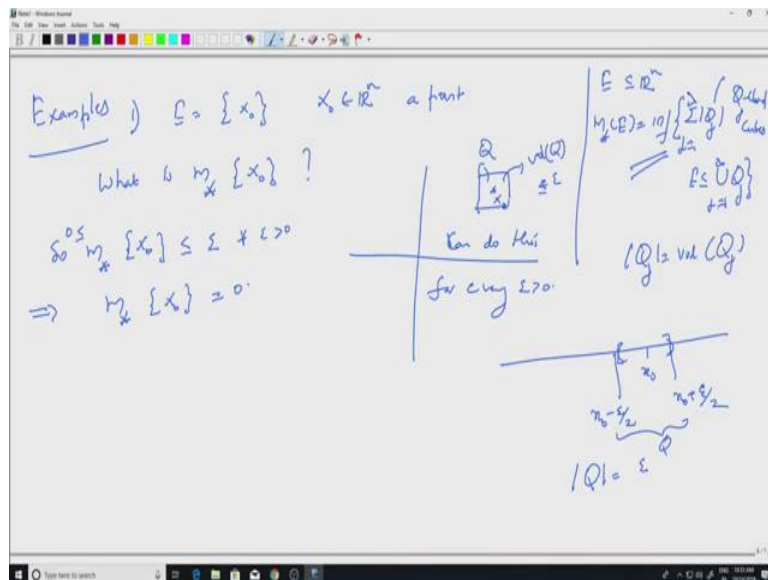 Note1 - Windows Journal
File Edit View Insert Actions Tools Help
Examples 1) E = {x₀} x₀ ∈ ℝⁿ a point
What is m_* {x₀} ?
So 0 ≤ m_* {x₀} ≤ ε ∀ ε > 0
⇒ m_* {x₀} = 0.
Q
vol(Q)
x₀
ε
Can do this
for every ε > 0.
E ⊆ ℝⁿ
m_*(E) = inf { Σ_{j=1}^∞ |Q_j| / Q_j closed cubes
E ⊆ ∪_{j=1}^∞ Q_j }
|Q_j| = vol(Q_j)
x₀
x₀ - ε/2
x₀ + ε/2
Q
|Q| = ε
Type here to search
ENG